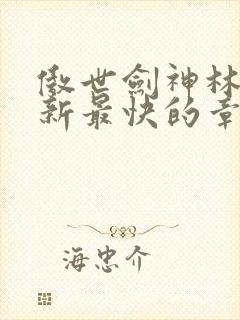 傲世劍神林
新最快的章
海忠介